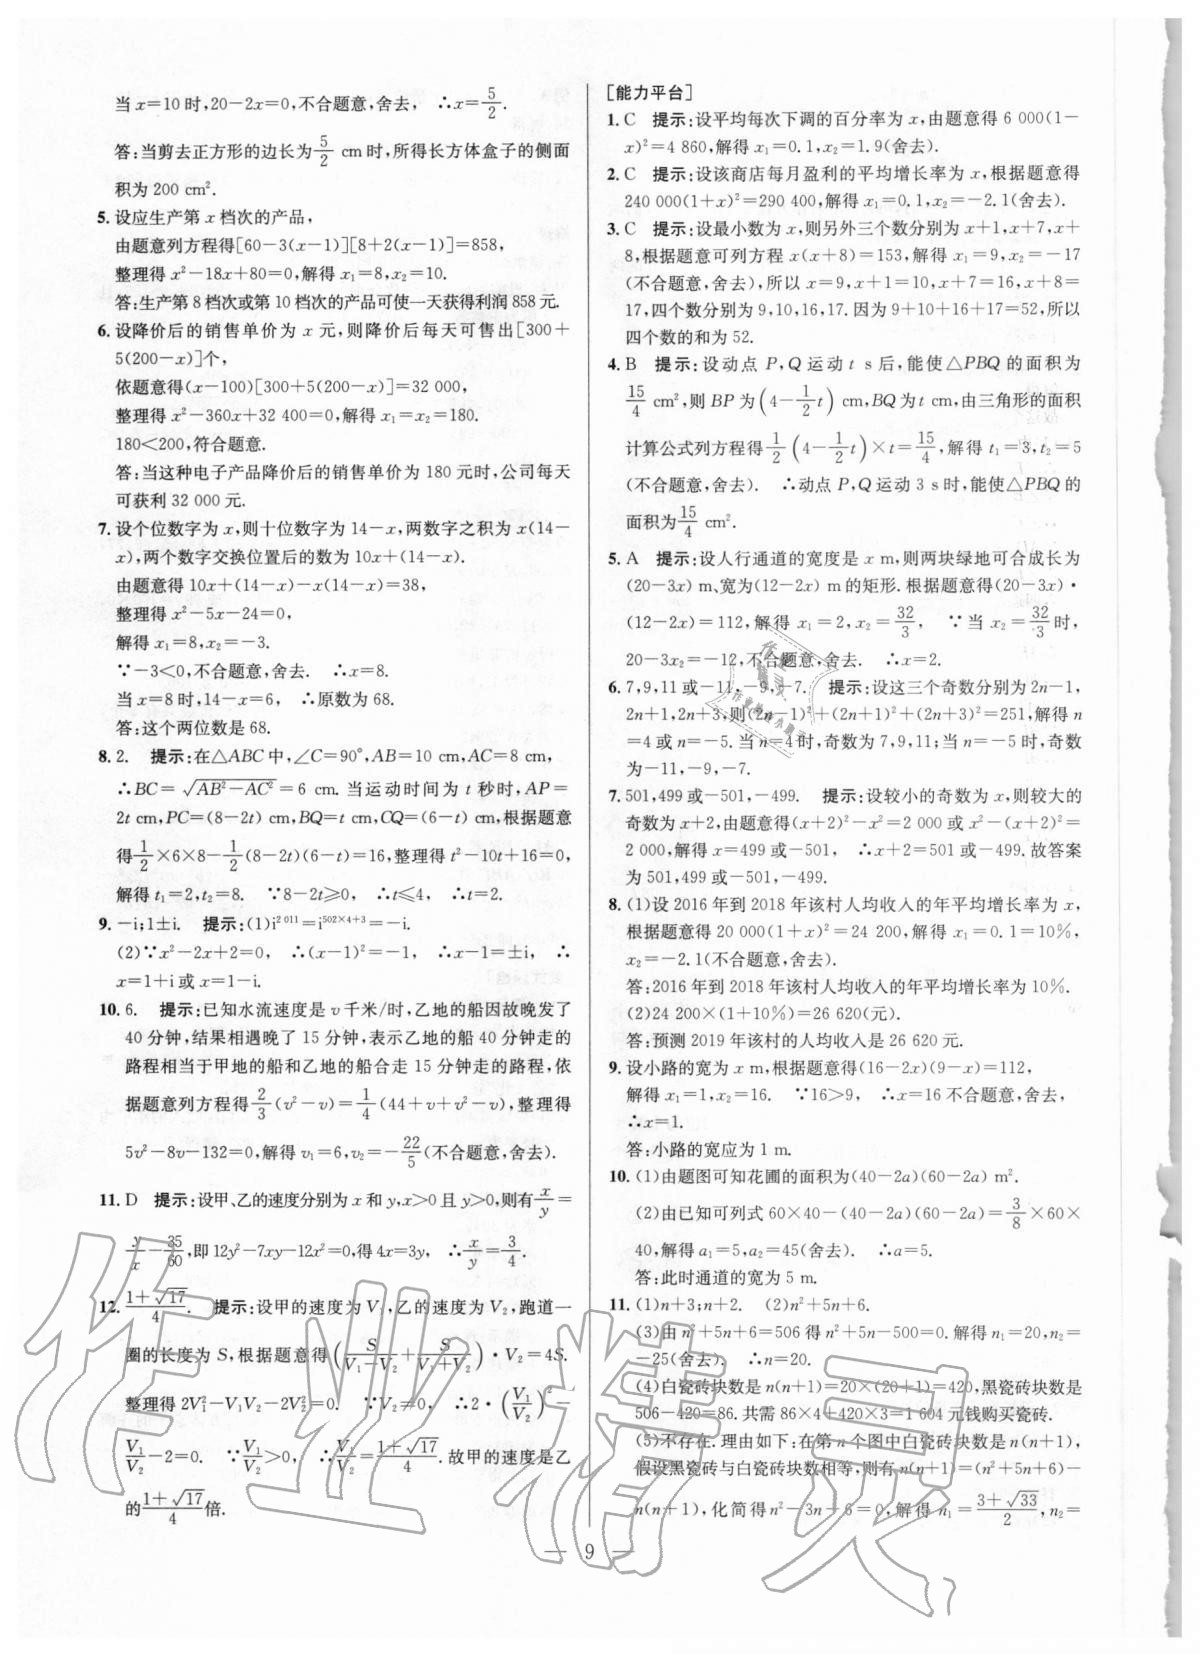 当 x=10 时,20-2x=0,不合题意,舍去. ∴x=5/2.
答:当剪去正方形的边长为 5/2 cm时,所得长方体盒子的侧面
积为 200 cm².
5. 设应生产第 x 档次的产品,
由题意列方程得[60-3(x-1)][8+2(x-1)]=858,
整理得 x²-18x+80=0,解得 x₁=8,x₂=10.
答:生产第 8 档次或第 10 档次的产品可使一天获得利润 858 元.
6. 设降价后的销售单价为 x 元,则降价后每天可售出[300+
5(200-x)]个,
依题意得(x-100)[300+5(200-x)]=32 000,
整理得 x²-360x+32 400=0,解得 x₁=x₂=180.
180<200,符合题意.
答:当这种电子产品降价后的销售单价为 180 元时,公司每天
可获利 32 000 元.
7. 设个位数字为 x,则十位数字为 14-x,两数字之积为 x(14-
x),两个数字交换位置后的数为 10x+(14-x).
由题意得 10x+(14-x)-x(14-x)=38,
整理得 x²-5x-24=0,
解得 x₁=8,x₂=-3.
∵-3<0,不合题意,舍去. ∴x=8.
当 x=8 时,14-x=6, ∴原数为 68.
答:这个两位数是 68.
8. 2. 提示:在△ABC 中,∠C=90°,AB=10 cm,AC=8 cm,
∴BC=√(AB²-AC²)=6 cm. 当运动时间为 t 秒时,AP=
2t cm,PC=(8-2t) cm,BQ=t cm,CQ=(6-t) cm,根据题意
得 1/2×6×8-1/2(8-2t)(6-t)=16,整理得 t²-10t+16=0,
解得 t₁=2,t₂=8. ∵8-2t≥0, ∴t≤4, ∴t=2.
9. -i;1±i. 提示:(1)i^2 011=i^502×4+3=-i.
(2)∵x²-2x+2=0, ∴(x-1)²=-1, ∴x-1=±i, ∴
x=1+i或 x=1-i.
10. 6. 提示:已知水流速度是 v 千米/时,乙地的船因故晚发了
40 分钟,结果相遇晚了 15 分钟,表示乙地的船 40 分钟走的
路程相当于甲地的船和乙地的船合走 15 分钟走的路程,依
据题意列方程得 2/3(v²-v)=1/4(44+v+v²-v),整理得
5v²-8v-132=0,解得 v₁=6,v₂=-22/5(不合题意,舍去).
11. D 提示:设甲、乙的速度分别为 x 和 y,x>0 且 y>0,则有 x/y=
y/x-35/60,即 12y²-7xy-12x²=0,得 4x=3y, ∴x/y=3/4.
12. (1+√17)/4. 提示:设甲的速度为 V₁,乙的速度为 V₂,跑道一
圈的长度为 S,根据题意得(S/(V₁-V₂)+S/(V₁+V₂))·V₂=4S.
整理得 2V₁²-V₁V₂-2V₂²=0. ∵V₂≠0, ∴2·(V₁/V₂)²-
V₁/V₂-2=0. ∵V₁/V₂>0, ∴V₁/V₂=(1+√17)/4. 故甲的速度是乙
的(1+√17)/4倍.
[能力平台]
1. C 提示:设平均每次下调的百分率为 x,由题意得 6 000(1-
x)²=4 860,解得 x₁=0.1,x₂=1.9(舍去).
2. C 提示:设该商店每月盈利的平均增长率为 x,根据题意得
240 000(1+x)²=290 400,解得 x₁=0.1,x₂=-2.1(舍去).
3. C 提示:设最小数为 x,则另外三个数分别为 x+1,x+7,x+
8,根据题意可列方程 x(x+8)=153,解得 x₁=9,x₂=-17
(不合题意,舍去),所以 x=9,x+1=10,x+7=16,x+8=
17,四个数分别为 9,10,16,17. 因为 9+10+16+17=52,所以
四个数的和为 52.
4. B 提示:设动点 P,Q 运动 t s后,能使△PBQ 的面积为
15/4 cm²,则 BP 为(4-1/2t) cm,BQ为 t cm,由三角形的面积
计算公式列方程得 1/2(4-1/2t)×t=15/4,解得 t₁=3,t₂=5
(不合题意,舍去). ∴动点 P,Q 运动 3 s时,能使△PBQ 的
面积为 15/4 cm².
5. A 提示:设人行通道的宽度是 x m,则两块绿地可合成长为
(20-3x) m、宽为(12-2x) m的矩形. 根据题意得(20-3x)·
(12-2x)=112,解得 x₁=2,x₂=32/3, ∵当 x₂=32/3时,
20-3x₂=-12,不合题意,舍去, ∴x=2.
6. 7,9,11 或-11,-9,-7. 提示:设这三个奇数分别为 2n-1,
2n+1,2n+3,则(2n-1)²+(2n+1)²+(2n+3)²=251,解得 n
=4或 n=-5. 当 n=4时,奇数为 7,9,11;当 n=-5 时,奇数
为-11,-9,-7.
7. 501,499 或-501,-499. 提示:设较小的奇数为 x,则较大的
奇数为 x+2,由题意得(x+2)²-x²=2 000 或 x²-(x+2)²=
2 000,解得 x=499 或-501, ∴x+2=501 或-499. 故答案
为 501,499 或-501,-499.
8. (1)设 2016 年到 2018 年该村人均收入的年平均增长率为 x,
根据题意得 20 000(1+x)²=24 200,解得 x₁=0.1=10%,
x₂=-2.1(不合题意,舍去).
答:2016 年到 2018 年该村人均收入的年平均增长率为 10%.
(2)24 200×(1+10%)=26 620(元).
答:预测 2019 年该村的人均收入是 26 620元.
9. 设小路的宽为 x m,根据题意得(16-2x)(9-x)=112,
解得 x₁=1,x₂=16. ∵16>9, ∴x=16不合题意,舍去,
∴x=1.
答:小路的宽应为 1 m.
10. (1)由题图可知花圃的面积为(40-2a)(60-2a) m².
(2)由已知可列式 60×40-(40-2a)(60-2a)=3/8×60×
40,解得 a₁=5,a₂=45(舍去). ∴a=5.
答:此时通道的宽为 5 m.
11. (1)n+3;n+2. (2)n²+5n+6.
(3)由 n²+5n+6=506 得 n²+5n-500=0. 解得 n₁=20,n₂=
-25(舍去). ∴n=20.
(4)白瓷砖块数是 n(n+1)=20×(20+1)=420,黑瓷砖块数是
506-420=86. 共需 86×4+420×3=1 604 元钱购买瓷砖.
(5)不存在. 理由如下:在第 n 个图中白瓷砖块数是 n(n+1),
假设黑瓷砖与白瓷砖块数相等,则有 n(n+1)=(n²+5n+6)-
n(n+1),化简得 n²-3n-6=0,解得 n₁=(3+√33)/2,n₂=
— 9 —
作业精灵